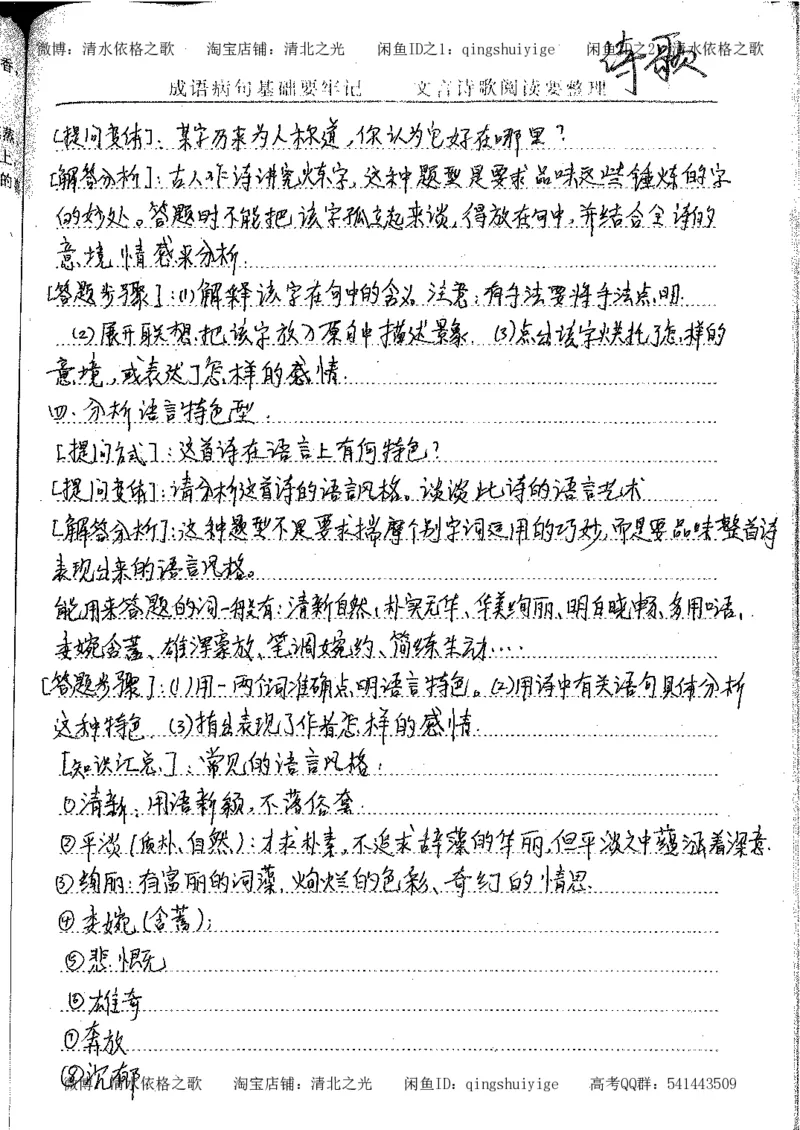 微博：清水依格之歌 淘宝店铺：清北之光 闲鱼ID之1：qingshuiyige 闲鱼ID之2：清水依格之歌
诗歌
成语病句基础要牢记 文言诗歌阅读要整理
[提问变体]：某字历来为人称道，你认为它好在哪里？
[解答分析]：古人作诗讲究炼字，这种题型是要求品味这些锤炼的字
的妙处。答题时不能把该字孤立起来谈，得放在句中，并结合全诗的
意境情感来分析.
[答题步骤]：(1)解释该字在句中的含义 注意：有手法要将手法点明.
(2)展开联想，把该字放入原句中描述景象. (3)点出该字烘托了怎样的
意境，或表达了怎样的感情.
四.分析语言特色型.
[提问方式]：这首诗在语言上有何特色？
[提问变体]：请分析这首诗的语言风格。谈谈此诗的语言艺术
[解答分析]：这种题型不是要求揣摩个别字词运用的巧妙，而是要品味整首诗
表现出来的语言风格。
能用来答题的词一般有：清新自然、朴实无华、华美绚丽、明白晓畅、多用口语、
委婉含蓄、雄浑豪放、笔调婉约、简练生动····
[答题步骤]：(1)用一两个词准确点明语言特色。(2)用诗中有关语句具体分析
这种特色. (3)指出表现了作者怎样的感情.
[知识汇总]：常见的语言风格：
①清新：用语新颖，不落俗套.
②平淡(质朴、自然)：力求朴素，不追求辞藻的华丽，但平淡之中蕴涵着深意.
③绚丽：有富丽的词藻，绚烂的色彩、奇幻的情思.
④委婉(含蓄)；
⑤悲慨
⑥雄奇
⑦奔放
⑧沉郁
微博：清水依格之歌 淘宝店铺：清北之光 闲鱼ID：qingshuiyige 高考QQ群：541443509